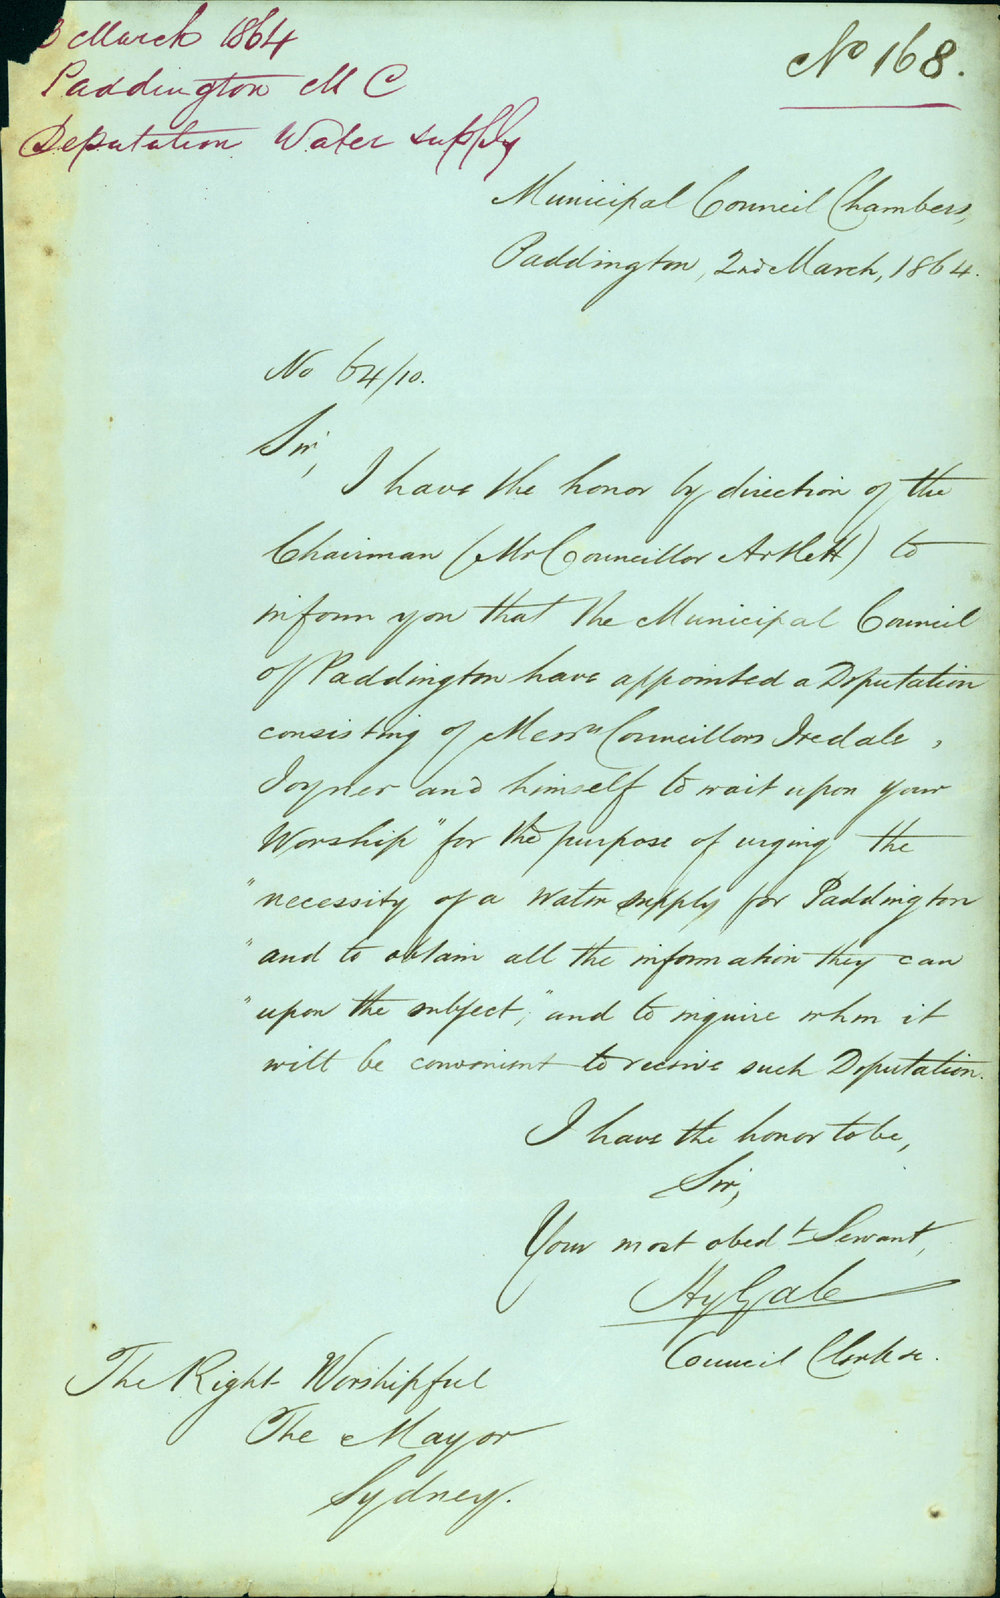 3 March 1864
Paddington M C
Deputation Water supply
No 168.
Municipal Council Chambers,
Paddington, 2nd March, 1864.
No 64/10.
Sir,
I have the honor by direction of the
Chairman (Mr Councillor Artlett) to
inform you that the Municipal Council
of Paddington have appointed a Deputation
consisting of Messrs Councillors Iredale,
Joyner and himself to wait upon your
Worship "for the purpose of urging the
"necessity of a water supply for Paddington
"and to obtain all the information they can
"upon the subject," and to inquire when it
will be convenient to receive such Deputation.
I have the honor to be,
Sir,
Your most obedt Servant,
Hy Gale
Council Clerk &c.
The Right Worshipful
The Mayor
Sydney.